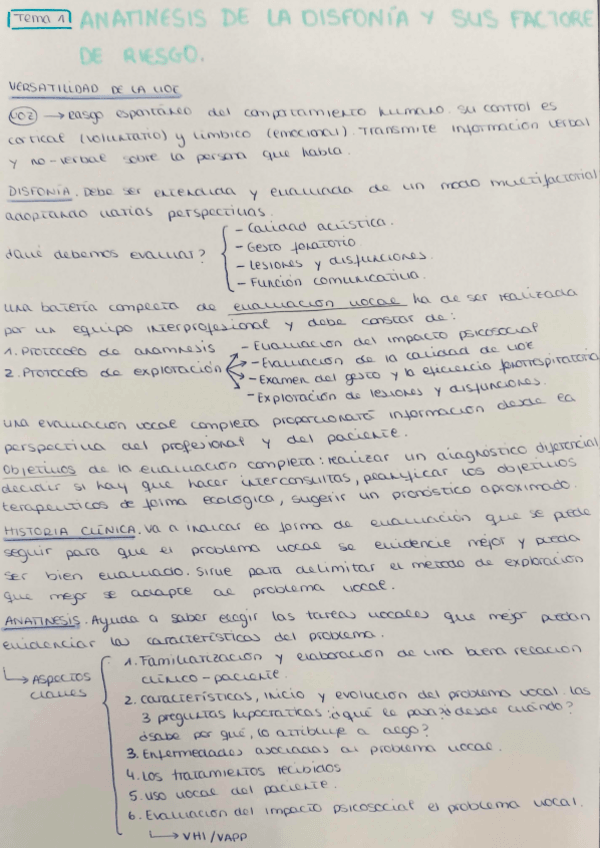 Tema 1 ANAMNESIS DE LA DISFONÍA Y SUS FACTORE
DE RIESGO.
VERSATILIDAD DE LA VOZ
VOZ → rasgo espontáneo del comportamiento humano. Su control es
cortical (voluntario) y límbico (emocional). Transmite información verbal
y no-verbal sobre la persona que habla.
DISFONÍA. Debe ser entendida y evaluada de un modo multifactorial
adoptando varias perspectivas.
¿Qué debemos evaluar?
- Calidad acústica.
- Gesto fonatorio.
- Lesiones y disfunciones.
- Función comunicativa.
Una batería completa de evaluación vocal ha de ser realizada
por un equipo interprofesional y debe constar de:
1. Protocolo de anamnesis
2. Protocolo de exploración
- Evaluación del impacto psicosocial
- Evaluación de la calidad de voz
- Examen del gesto y la eficiencia fonorrespiratoria
- Exploración de lesiones y disfunciones.
Una evaluación vocal completa proporcionará información desde la
perspectiva del profesional y del paciente.
Objetivos de la evaluación completa: realizar un diagnóstico diferencial
decidir si hay que hacer interconsultas, planificar los objetivos
terapeuticos de forma ecológica, sugerir un pronóstico aproximado.
HISTORIA CLÍNICA. Va a indicar la forma de evaluación que se puede
seguir para que el problema vocal se evidencie mejor y pueda
ser bien evaluado. Sirve para delimitar el método de exploración
que mejor se adapte al problema vocal.
ANAMNESIS. Ayuda a saber escoger las tareas vocales que mejor puedan
evidenciar las características del problema.
↳ Aspectos claves
1. Familiarización y elaboración de una buena relación
clínico-paciente.
2. Características, inicio y evolución del problema vocal. Las
3 preguntas hipocráticas: ¿qué le pasa? ¿desde cuándo?
¿sabe por qué, lo atribuye a algo?
3. Enfermedades asociadas al problema vocal.
4. Los tratamientos recibidos
5. Uso vocal del paciente.
6. Evaluación del impacto psicosocial el problema vocal.
↳ VHI/VAPP